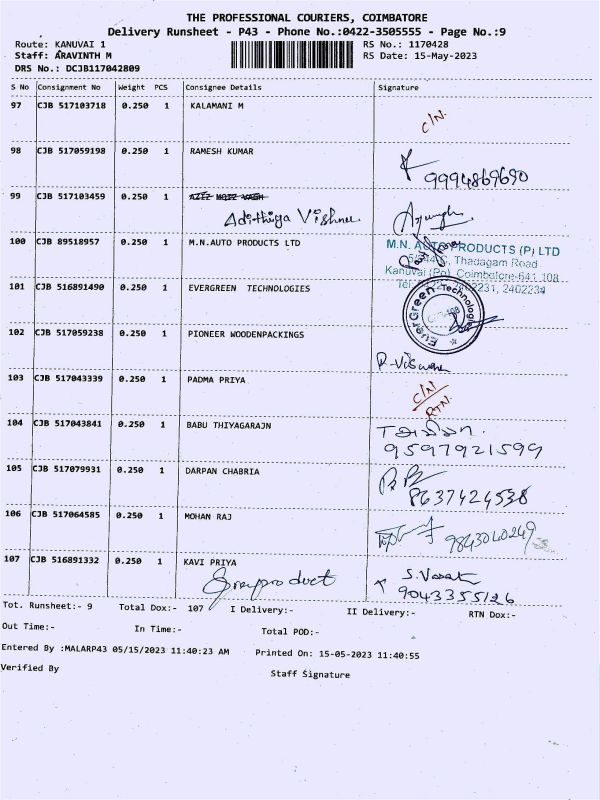 THE PROFESSIONAL COURIERS, COIMBATORE
Delivery Runsheet - P43 - Phone No.:0422-3505555 - Page No.:9
Route: KANUVAI 1 RS No.: 1170428
Staff: ARAVINTH M RS Date: 15-May-2023
DRS No.: DCJB117042809
S No Consignment No Weight PCS Consignee Details Signature
97 CJB 517103718 0.250 1 KALAMANI M C/N.
98 CJB 517059198 0.250 1 RAMESH KUMAR
9994869690
99 CJB 517103459 0.250 1
Adithiya Vishnu
100 CJB 89518957 0.250 1 M.N.AUTO PRODUCTS LTD M.N. AUTO PRODUCTS (P) LTD
Thadagam Road
Kanuvai (Po), Coimbatore-641 108
2402231, 2402234
101 CJB 516891490 0.250 1 EVERGREEN TECHNOLOGIES EverGreen Technologies
102 CJB 517059238 0.250 1 PIONEER WOODENPACKINGS
103 CJB 517043339 0.250 1 PADMA PRIYA C/N
RTN.
104 CJB 517043841 0.250 1 BABU THIYAGARAJN
9597921599
105 CJB 517079931 0.250 1 DARPAN CHABRIA
8637424538
106 CJB 517064585 0.250 1 MOHAN RAJ 9843040249
107 CJB 516891332 0.250 1 KAVI PRIYA
9043355126
Tot. Runsheet:- 9 Total Dox:- 107 I Delivery:- II Delivery:- RTN Dox:-
Out Time:- In Time:- Total POD:-
Entered By :MALARP43 05/15/2023 11:40:23 AM Printed On: 15-05-2023 11:40:55
Verified By Staff Signature